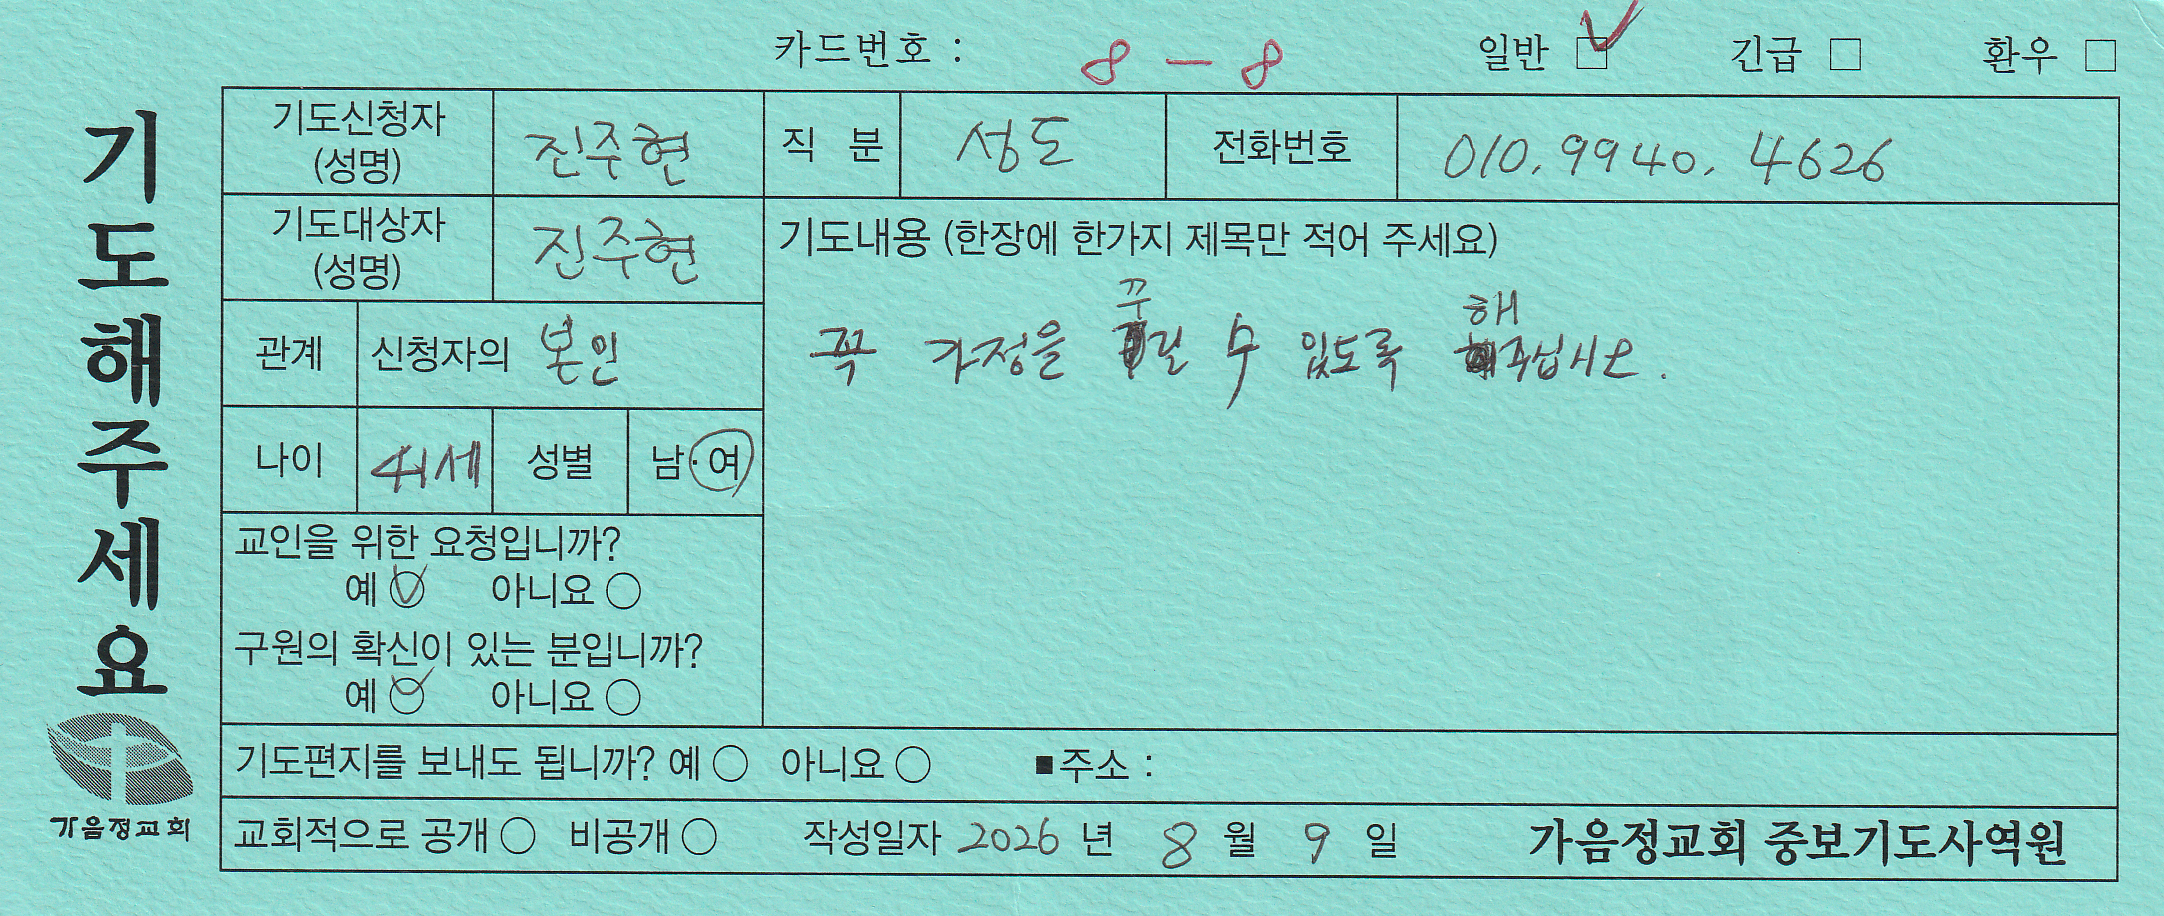 카드번호 : 8 - 8 일반 ☑ 긴급 □ 환우 □
기도해주세요
기도신청자 (성명) 진주현 직 분 성도 전화번호 010. 9940. 4626
기도대상자 (성명) 진주현
기도내용 (한장에 한가지 제목만 적어 주세요)
꼭 가정을 꾸릴 수 있도록 해주십시오.
관계 신청자의 본인
나이 41세 성별 남·여
교인을 위한 요청입니까?
예 ○ 아니요 ○
구원의 확신이 있는 분입니까?
예 ○ 아니요 ○
기도편지를 보내도 됩니까? 예 ○ 아니요 ○ ■주소 :
가음정교회
교회적으로 공개 ○ 비공개 ○ 작성일자 2026 년 8 월 9 일 가음정교회 중보기도사역원